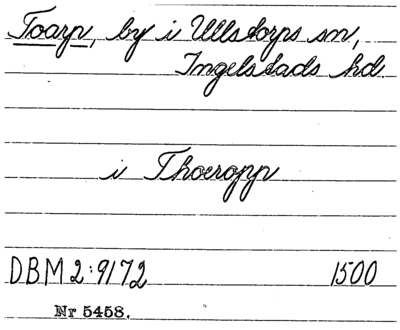 Toarp, by i Ullstorps sn,
Ingelstads hd.
i Thoeropp
DBM 2:9172 1500
Nr 5458.